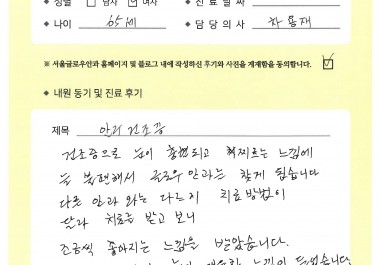 ◆ 성별 남자 여자 ◆ 진료날짜
◆ 나이 65세 ◆ 담당의사 차흥재
※ 서울글로우안과 홈페이지 및 블로그 내에 작성하신 후기와 사진을 게재함을 동의합니다.
◆ 내원 동기 및 진료 후기
제목 안구 건조증
건조증으로 눈이 충혈되고 찌르는 느낌에
늘 불편해서 글로우 안과를 찾게 됩습니다
다른 안과 와는 다르게 치료방법이
달라 치료를 받고 보니
조금씩 좋아지는 느낌을 받았습니다.